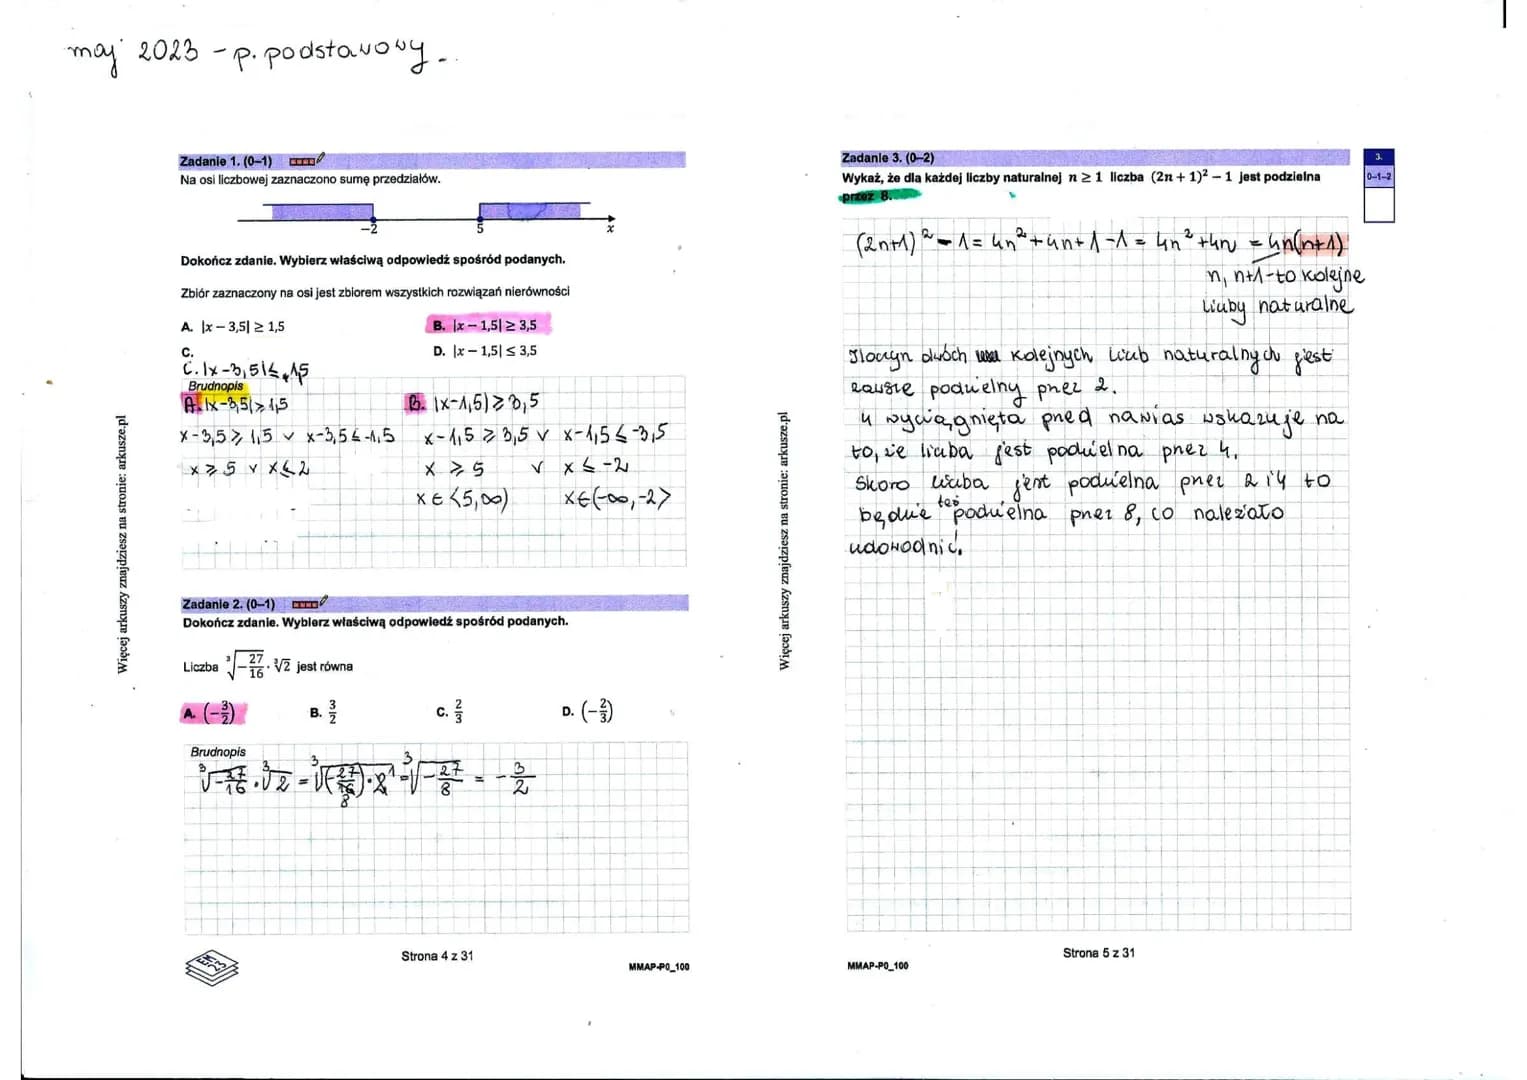 maj 2023 - p. podstawowy
Zadanie 1. (0–1)
Na osi liczbowej zaznaczono sumę przedziałów.
−2 5 x
Dokończ zdanie. Wybierz właściwą odpowiedź spośród podanych.
Zbiór zaznaczony na osi jest zbiorem wszystkich rozwiązań nierówności
A. |x − 3,5| ≥ 1,5 B. |x − 1,5| ≥ 3,5
C. D. |x − 1,5| ≤ 3,5
C. |x-3,5| ≤ 1,5
Brudnopis
A. |x-3,5| ≥ 1,5 B. |x-1,5| ≥ 3,5
x-3,5 ≥ 1,5 ∨ x-3,5 ≤ -1,5 x-1,5 ≥ 3,5 ∨ x-1,5 ≤ -3,5
x ≥ 5 ∨ x ≤ 2 x ≥ 5 ∨ x ≤ -2
x ∈ <5,∞) x ∈ (-∞,-2>
Zadanie 2. (0–1)
Dokończ zdanie. Wybierz właściwą odpowiedź spośród podanych.
Liczba ∛(−27/16) · ∛2 jest równa
A. (−3/2) B. 3/2 C. 2/3 D. (−2/3)
Brudnopis
∛(-27/16) · ∛2 = ∛((-27/16) · 2) = ∛(-27/8) = -3/2
8 1
Strona 4 z 31
MMAP-P0_100
Więcej arkuszy znajdziesz na stronie: arkusze.pl
Zadanie 3. (0–2)
Wykaż, że dla każdej liczby naturalnej n ≥ 1 liczba (2n + 1)² − 1 jest podzielna
przez 8.
3.
0–1–2
(2n+1)² - 1 = 4n² + 4n + 1 - 1 = 4n² + 4n = 4n(n+1)
n, n+1 - to kolejne
liczby naturalne
Iloczyn dwóch kolejnych liczb naturalnych jest
zawsze podzielny przez 2.
4 wyciągnięta przed nawias wskazuje na
to, że liczba jest podzielna przez 4.
Skoro liczba jest podzielna przez 2 i 4 to
będzie też podzielna przez 8, co należało
udowodnić.
Strona 5 z 31
MMAP-P0_100
Więcej arkuszy znajdziesz na stronie: arkusze.pl